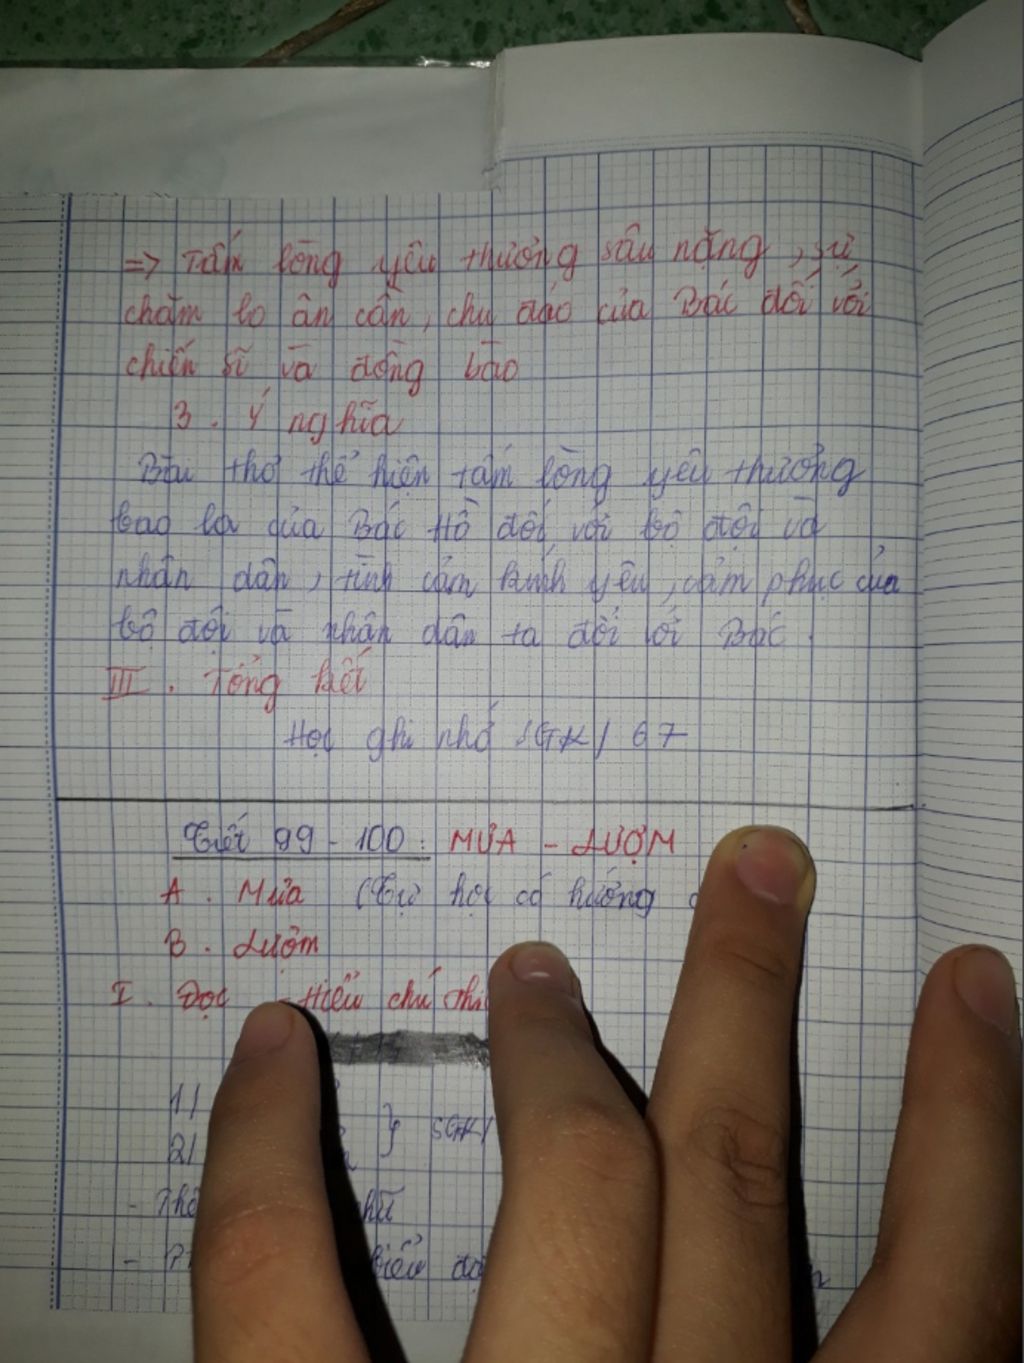 => Tấm lòng yêu thương sâu nặng, sự
chăm lo ân cần, chu đáo của Bác đối với
chiến sĩ và đồng bào
3. Ý nghĩa
Bài thơ thể hiện tấm lòng yêu thương
bao la của Bác Hồ đối với bộ đội và
nhân dân, tình cảm kính yêu, cảm phục của
bộ đội và nhân dân ta đối với Bác.
III. Tổng kết
Học ghi nhớ SGK/ 67
Tiết 99 - 100: MƯA - LƯỢM
A. Mưa (Tự học có hướng
B. Lượm
I. Đọc - Hiểu chú
1/
2/ } SGK/
- Thể
- biểu